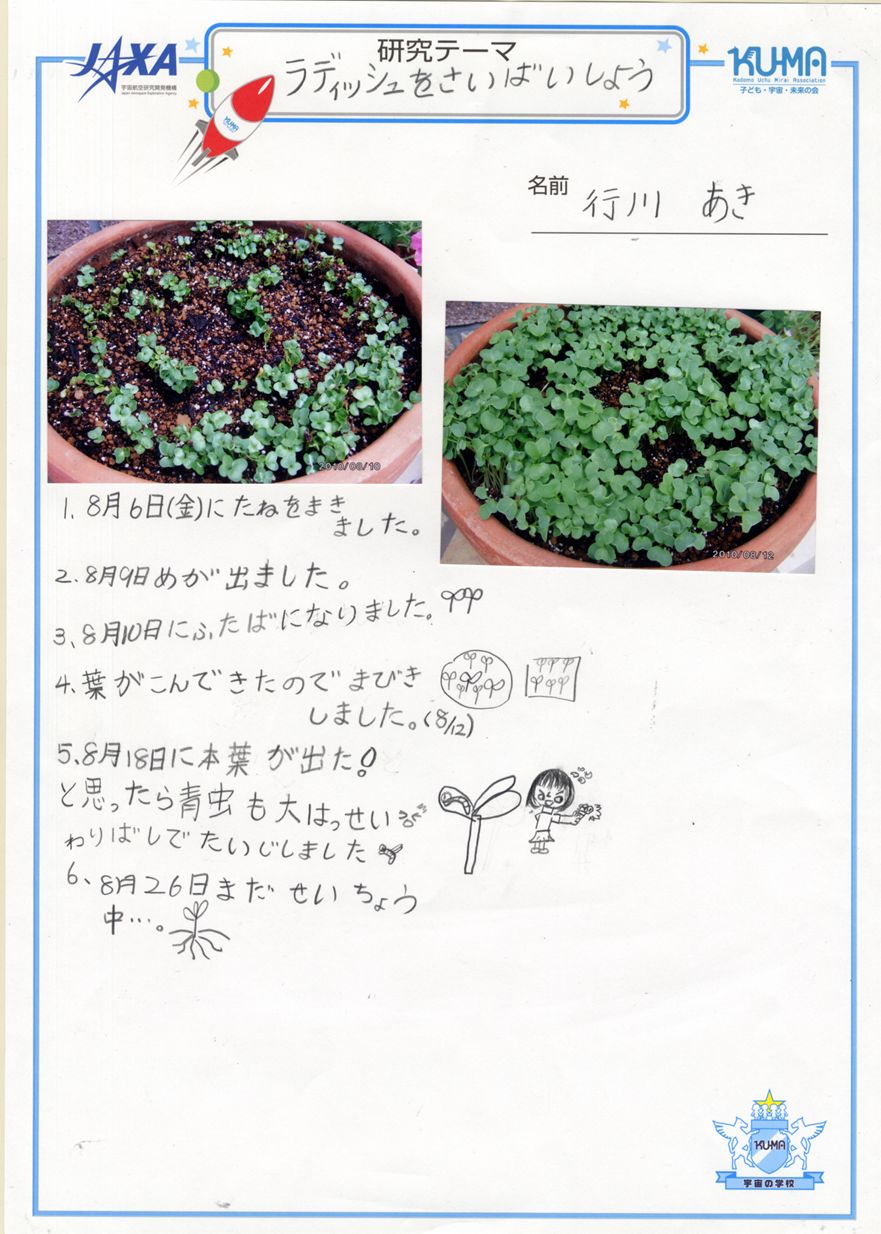 JAXA
宇宙航空研究開発機構
Japan Aerospace Exploration Agency
研究テーマ
ラディッシュをさいばいしよう
KU-MA
Kodomo Uchu Mirai Association
子ども・宇宙・未来の会
KU-MA
名前 行川 あき
2010/08/10
2010/08/12
1、8月6日(金)にたねをまき
ました。
2、8月9日めが出ました。
3、8月10日にふたばになりました。
4、葉がこんできたのでまびき
しました。(8/12)
5、8月18日に本葉が出た!
と思ったら青虫も大はっせい
わりばしでたいじしました
6、8月26日まだせいちょう
中…。
KU-MA
宇宙の学校